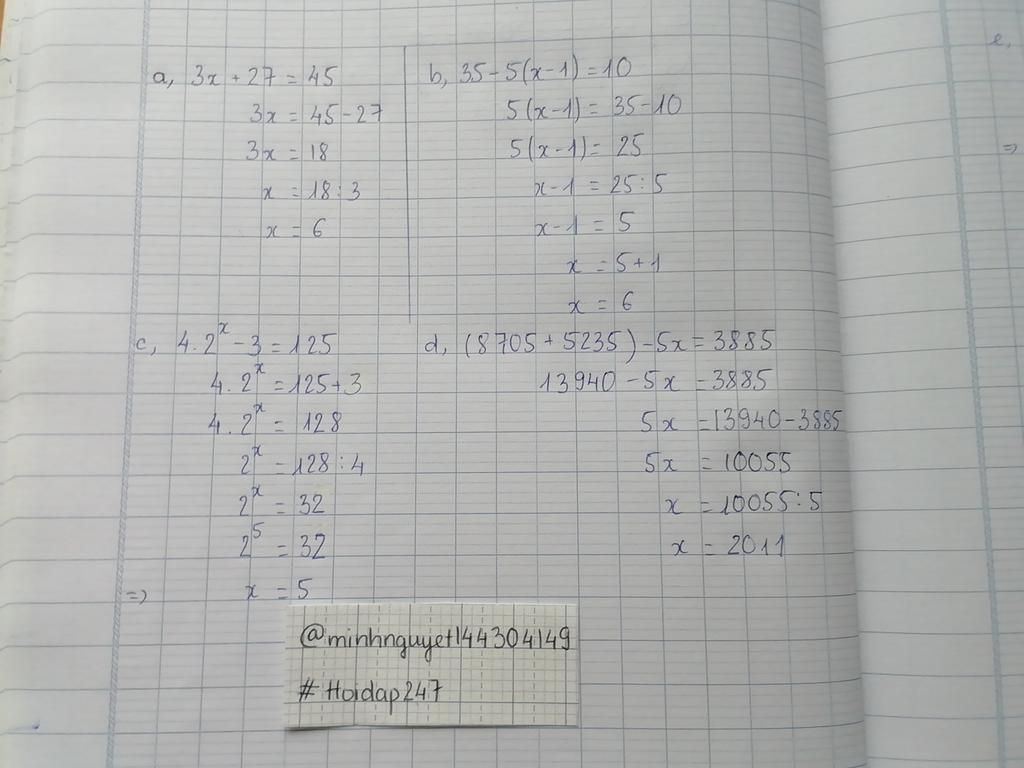 a, 3x + 27 = 45
3x = 45 - 27
3x = 18
x = 18 : 3
x = 6
b, 35 - 5(x - 1) = 10
5(x - 1) = 35 - 10
5(x - 1) = 25
x - 1 = 25 : 5
x - 1 = 5
x = 5 + 1
x = 6
c, 4 . 2ˣ - 3 = 125
4 . 2ˣ = 125 + 3
4 . 2ˣ = 128
2ˣ = 128 : 4
2ˣ = 32
2⁵ = 32
=> x = 5
d, (8705 + 5235) - 5x = 3885
13940 - 5x = 3885
5x = 13940 - 3885
5x = 10055
x = 10055 : 5
x = 2011
e,
=>
@minhnguyet144304149
# Hoidap247